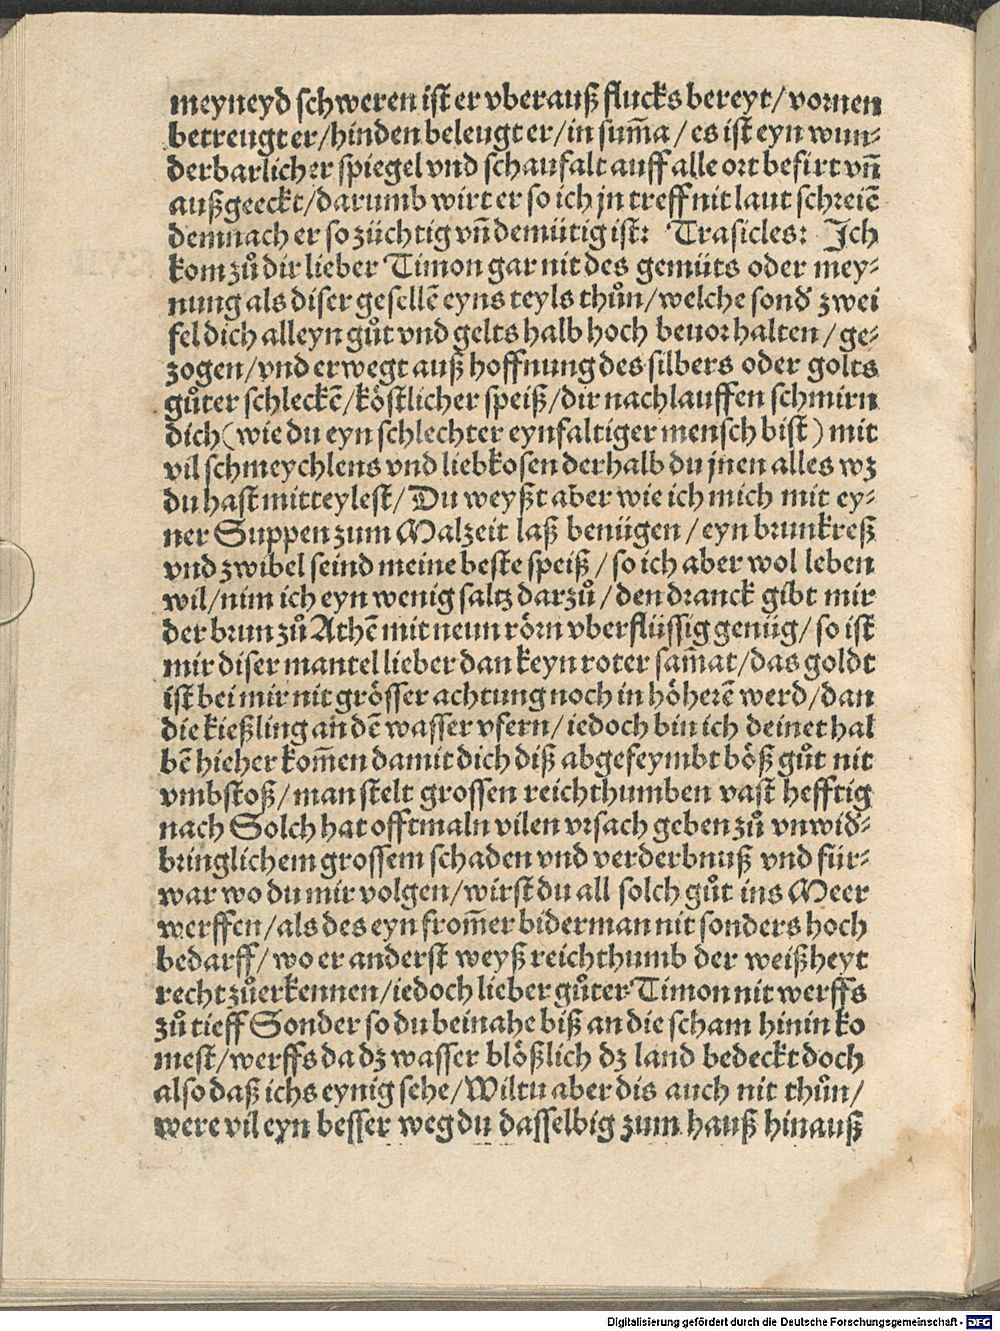 meyneyd schweren ist er vberauß flucks bereyt/ vornen
betreugt er/hinden beleugt er/in sum̄a/ es ist eyn wun⸗
derbarlicher spiegel vnd schaufalt auff alle ort befirt vñ
außgeeckt/darumb wirt er so ich jn treff nit laut schreiē
demnach er so züchtig vñ demütig ist: Trasicles: Ich
kom zů dir lieber Timon gar nit des gemüts oder mey⸗
nung als diser gesellē eyns teyls thůn/welche sond̕ zwei
fel dich alleyn gůt vnd gelts halb hoch beuor halten/ge⸗
zogen/vnd erwegt auß hoffnung des silbers oder golts
gůter schleckē/köstlicher speiß/dir nachlauffen schmirn
dich(wie du eyn schlechter eynfaltiger mensch bist) mit
vil schmeychlens vnd liebkosen derhalb du jnen alles wz
du hast mitteylest/Du weyßt aber wie ich mich mit ey⸗
ner Suppen zum Malzeit laß benügen/eyn brunkreß
vnd zwibel seind meine beste speiß/so ich aber wol leben
wil/nim ich eyn wenig saltz darzů/den dranck gibt mir
der brun zů Athē mit neun rörn vberflüssig genüg/so ist
mir diser mantel lieber dan keyn roter sam̄at/das goldt
ist bei mir nit grösser achtung noch in höherē werd/dan
die kießling an dē wasser vfern/iedoch bin ich deinet hal
bē hieher kom̄en damit dich diß abgefeymbt böß gůt nit
vmbstoß/man stelt grossen reichthumben vast hefftig
nach Solch hat offtmaln vilen vrsach geben zů vnwid⸗
bringlichem grossem schaden vnd verderbnuß vnd für⸗
war wo du mir volgen/wirst du all solch gůt ins Meer
werffen/als des eyn from̄er biderman nit sonders hoch
bedarff/wo er anderst weyß reichthumb der weißheyt
recht zůerkennen/iedoch lieber gůter Timon nit werffs
zů tieff Sonder so du beinahe biß an die scham hinin ko
mest/werffs da dz wasser blößlich dz land bedeckt doch
also daß ichs eynig sehe/Wiltu aber dis auch nit thůn/
were vil eyn besser weg du dasselbig zum hauß hinauß
Digitalisierung gefördert durch die Deutsche Forschungsgemeinschaft - DFG